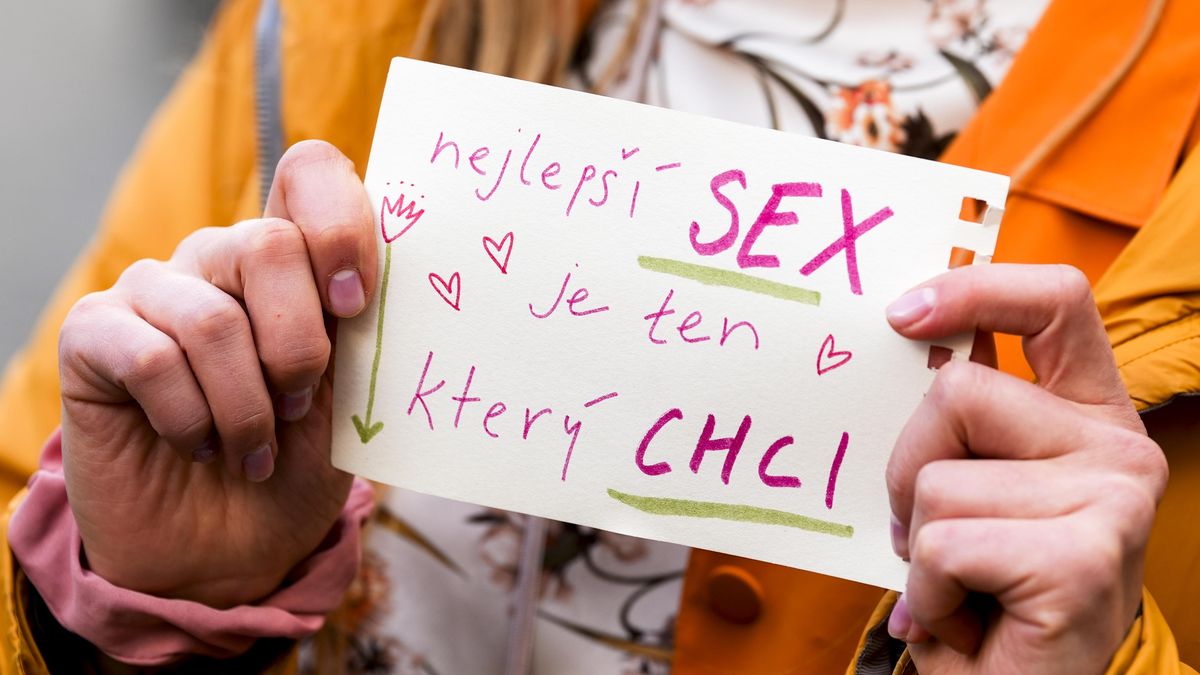 nejlepší SEX
je ten
který CHCI